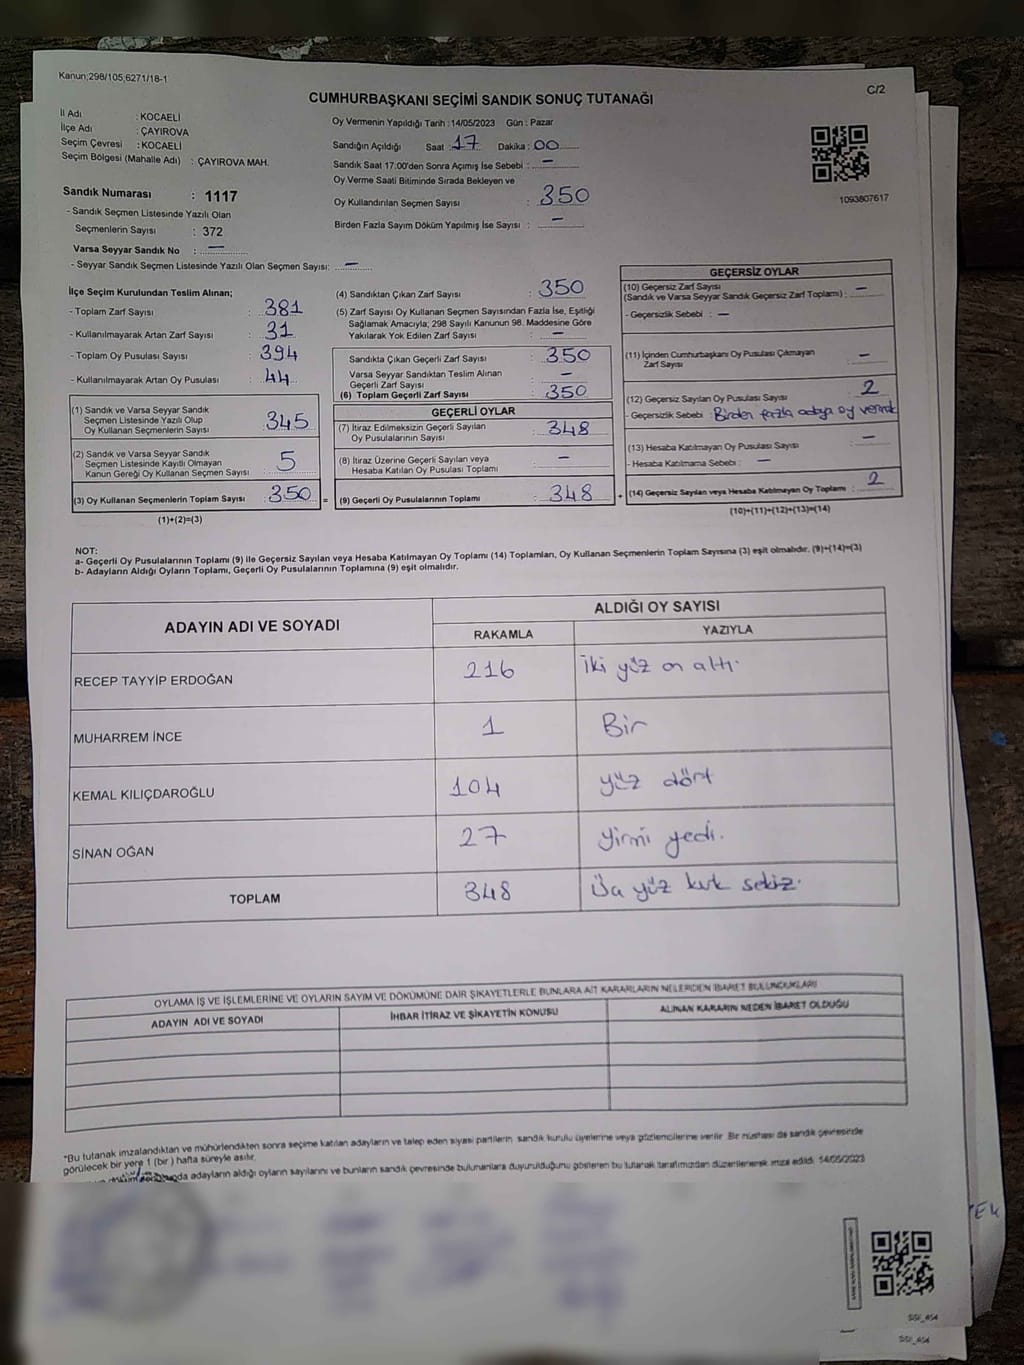 Kanun;298/105;6271/18-1
C/2
CUMHURBAŞKANI SEÇİMİ SANDIK SONUÇ TUTANAĞI
İl Adı : KOCAELİ
İlçe Adı : ÇAYIROVA
Seçim Çevresi : KOCAELİ
Seçim Bölgesi (Mahalle Adı) : ÇAYIROVA MAH.
Oy Vermenin Yapıldığı Tarih :14/05/2023 Gün : Pazar
Sandığın Açıldığı Saat : 17 Dakika : 00
Sandık Saat 17.00'den Sonra Açımış İse Sebebi : —
Oy Verme Saati Bitiminde Sırada Bekleyen ve
Oy Kullandırılan Seçmen Sayısı : 350
Birden Fazla Sayım Döküm Yapılmış İse Sayısı : —
1093807617
Sandık Numarası : 1117
- Sandık Seçmen Listesinde Yazılı Olan
Seçmenlerin Sayısı : 372
Varsa Seyyar Sandık No : —
- Seyyar Sandık Seçmen Listesinde Yazılı Olan Seçmen Sayısı: —
İlçe Seçim Kurulundan Teslim Alınan;
- Toplam Zarf Sayısı : 381
- Kullanılmayarak Artan Zarf Sayısı : 31
- Toplam Oy Pusulası Sayısı : 394
- Kullanılmayarak Artan Oy Pusulası : 44
(1) Sandık ve Varsa Seyyar Sandık
Seçmen Listesinde Yazılı Olup
Oy Kullanan Seçmenlerin Sayısı : 345
(2) Sandık ve Varsa Seyyar Sandık
Seçmen Listesinde Kayıtlı Olmayan
Kanun Gereği Oy Kullanan Seçmen Sayısı : 5
(3) Oy Kullanan Seçmenlerin Toplam Sayısı : 350 =
(1)+(2)=(3)
(4) Sandıktan Çıkan Zarf Sayısı : 350
(5) Zarf Sayısı Oy Kullanan Seçmen Sayısından Fazla İse, Eşitliği
Sağlamak Amacıyla; 298 Sayılı Kanunun 98. Maddesine Göre
Yakılarak Yok Edilen Zarf Sayısı : —
Sandıkta Çıkan Geçerli Zarf Sayısı : 350
Varsa Seyyar Sandıktan Teslim Alınan
Geçerli Zarf Sayısı : —
(6) Toplam Geçerli Zarf Sayısı : 350
GEÇERLİ OYLAR
(7) İtiraz Edilmeksizin Geçerli Sayılan
Oy Pusulalarının Sayısı : 348
(8) İtiraz Üzerine Geçerli Sayılan veya
Hesaba Katılan Oy Pusulası Toplamı : —
(9) Geçerli Oy Pusulalarının Toplamı : 348 +
GEÇERSİZ OYLAR
(10) Geçersiz Zarf Sayısı
(Sandık ve Varsa Seyyar Sandık Geçersiz Zarf Toplamı) : —
- Geçersizlik Sebebi : —
(11) İçinden Cumhurbaşkanı Oy Pusulası Çıkmayan
Zarf Sayısı : —
(12) Geçersiz Sayılan Oy Pusulası Sayısı : 2
- Geçersizlik Sebebi : Birden fazla adaya oy vermek
(13) Hesaba Katılmayan Oy Pusulası Sayısı : —
- Hesaba Katılmama Sebebi : —
(14) Geçersiz Sayılan veya Hesaba Katılmayan Oy Toplamı : 2
(10)+(11)+(12)+(13)=(14)
NOT:
a- Geçerli Oy Pusulalarının Toplamı (9) ile Geçersiz Sayılan veya Hesaba Katılmayan Oy Toplamı (14) Toplamları, Oy Kullanan Seçmenlerin Toplam Sayısına (3) eşit olmalıdır. (9)+(14)=(3)
b- Adayların Aldığı Oyların Toplamı, Geçerli Oy Pusulalarının Toplamına (9) eşit olmalıdır.
ADAYIN ADI VE SOYADI
ALDIĞI OY SAYISI
RAKAMLA YAZIYLA
RECEP TAYYİP ERDOĞAN 216 iki yüz on altı.
MUHARREM İNCE 1 Bir
KEMAL KILIÇDAROĞLU 104 yüz dört
SİNAN OĞAN 27 yirmi yedi.
TOPLAM 348 yüz kırk sekiz.
OYLAMA İŞ VE İŞLEMLERİNE VE OYLARIN SAYIM VE DÖKÜMÜNE DAİR ŞİKAYETLERLE BUNLARA AİT KARARLARIN NELERDEN İBARET BULUNDUKLARI
ADAYIN ADI VE SOYADI İHBAR İTİRAZ VE ŞİKAYETİN KONUSU ALINAN KARARIN NEDEN İBARET OLDUĞU
*Bu tutanak imzalandıktan ve mühürlendikten sonra seçime katılan adayların ve talep eden siyasi partilerin sandık kurulu üyelerine veya gözlemcilerine verilir. Bir nüshası da sandık çevresinde
görülecek bir yere 1 (bir) hafta süreyle asılır.
adayların aldığı oyların sayılarını ve bunların sandık çevresinde bulunanlara duyurulduğunu gösteren bu tutanak tarafımızdan düzenlenerek imza edildi. 14/05/2023